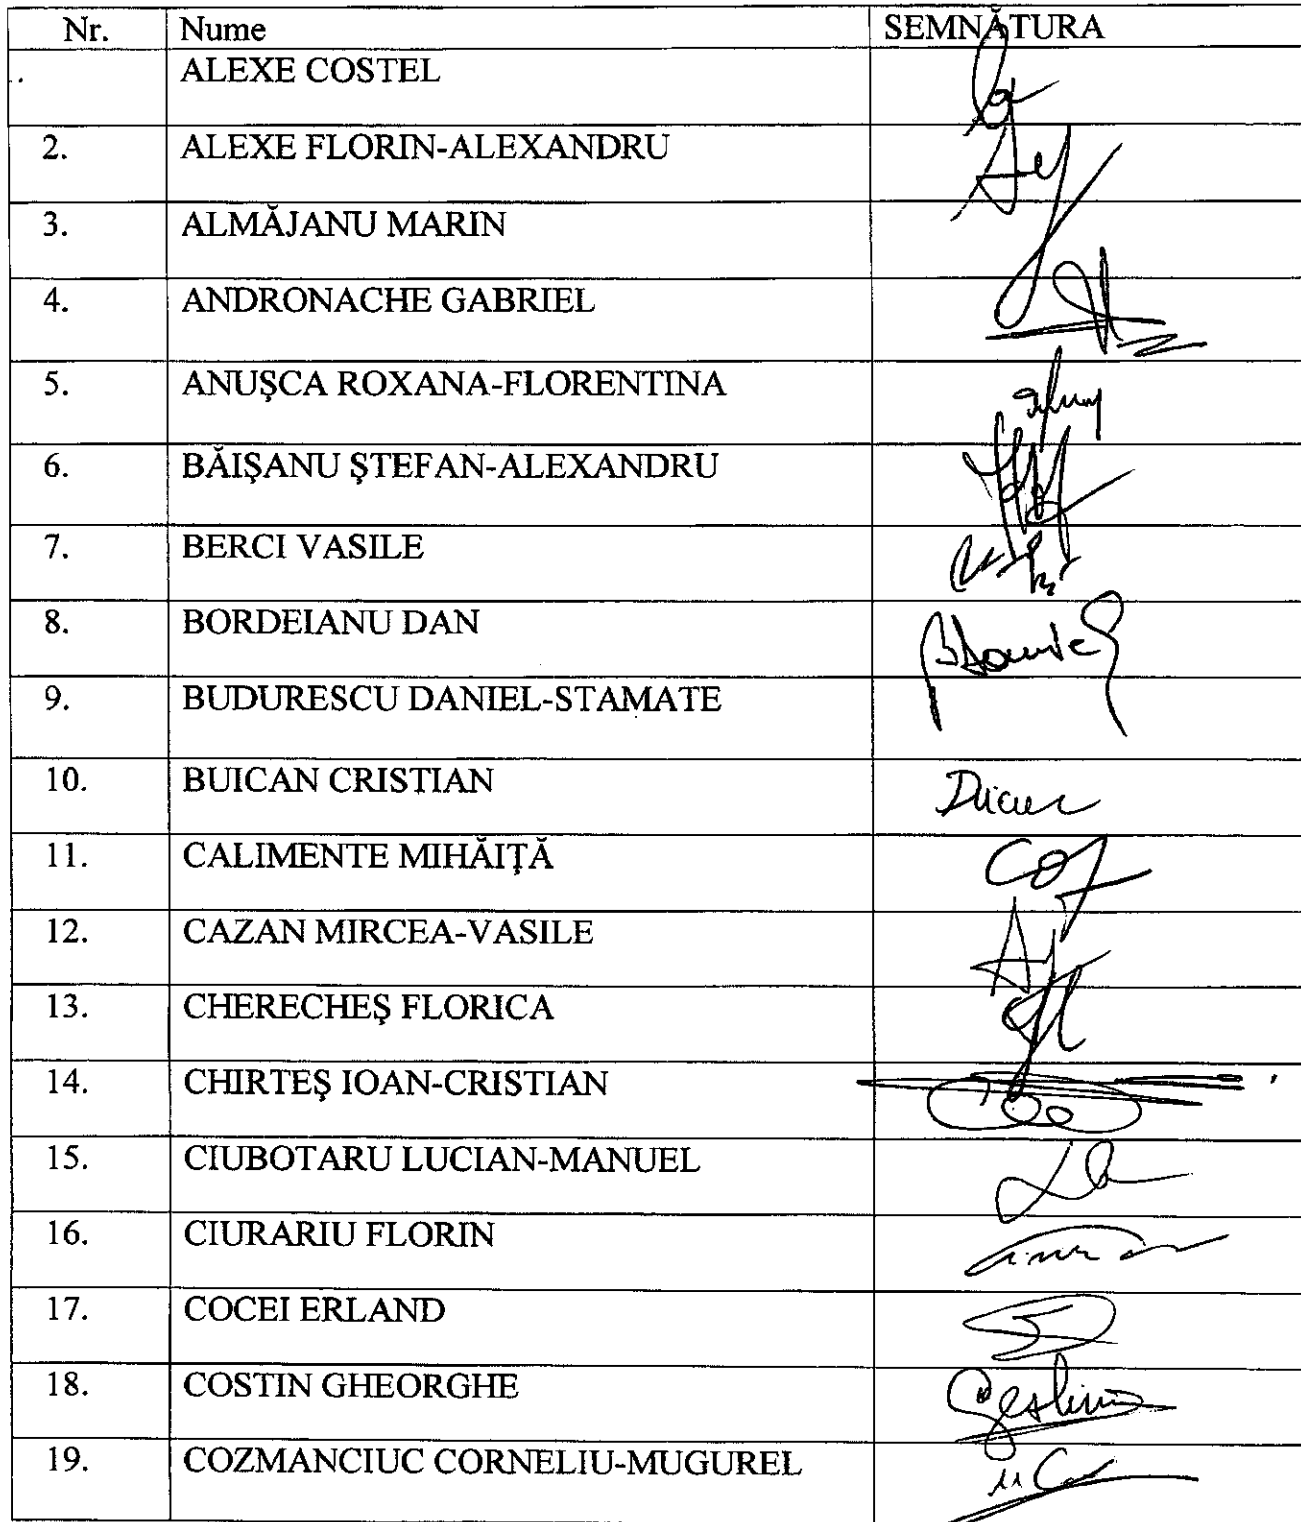 Nr. Nume SEMNĂTURA
. ALEXE COSTEL
2. ALEXE FLORIN-ALEXANDRU
3. ALMĂJANU MARIN
4. ANDRONACHE GABRIEL
5. ANUŞCA ROXANA-FLORENTINA
6. BĂIŞANU ŞTEFAN-ALEXANDRU
7. BERCI VASILE
8. BORDEIANU DAN
9. BUDURESCU DANIEL-STAMATE
10. BUICAN CRISTIAN
11. CALIMENTE MIHĂIŢĂ
12. CAZAN MIRCEA-VASILE
13. CHERECHEŞ FLORICA
14. CHIRTEŞ IOAN-CRISTIAN
15. CIUBOTARU LUCIAN-MANUEL
16. CIURARIU FLORIN
17. COCEI ERLAND
18. COSTIN GHEORGHE
19. COZMANCIUC CORNELIU-MUGUREL